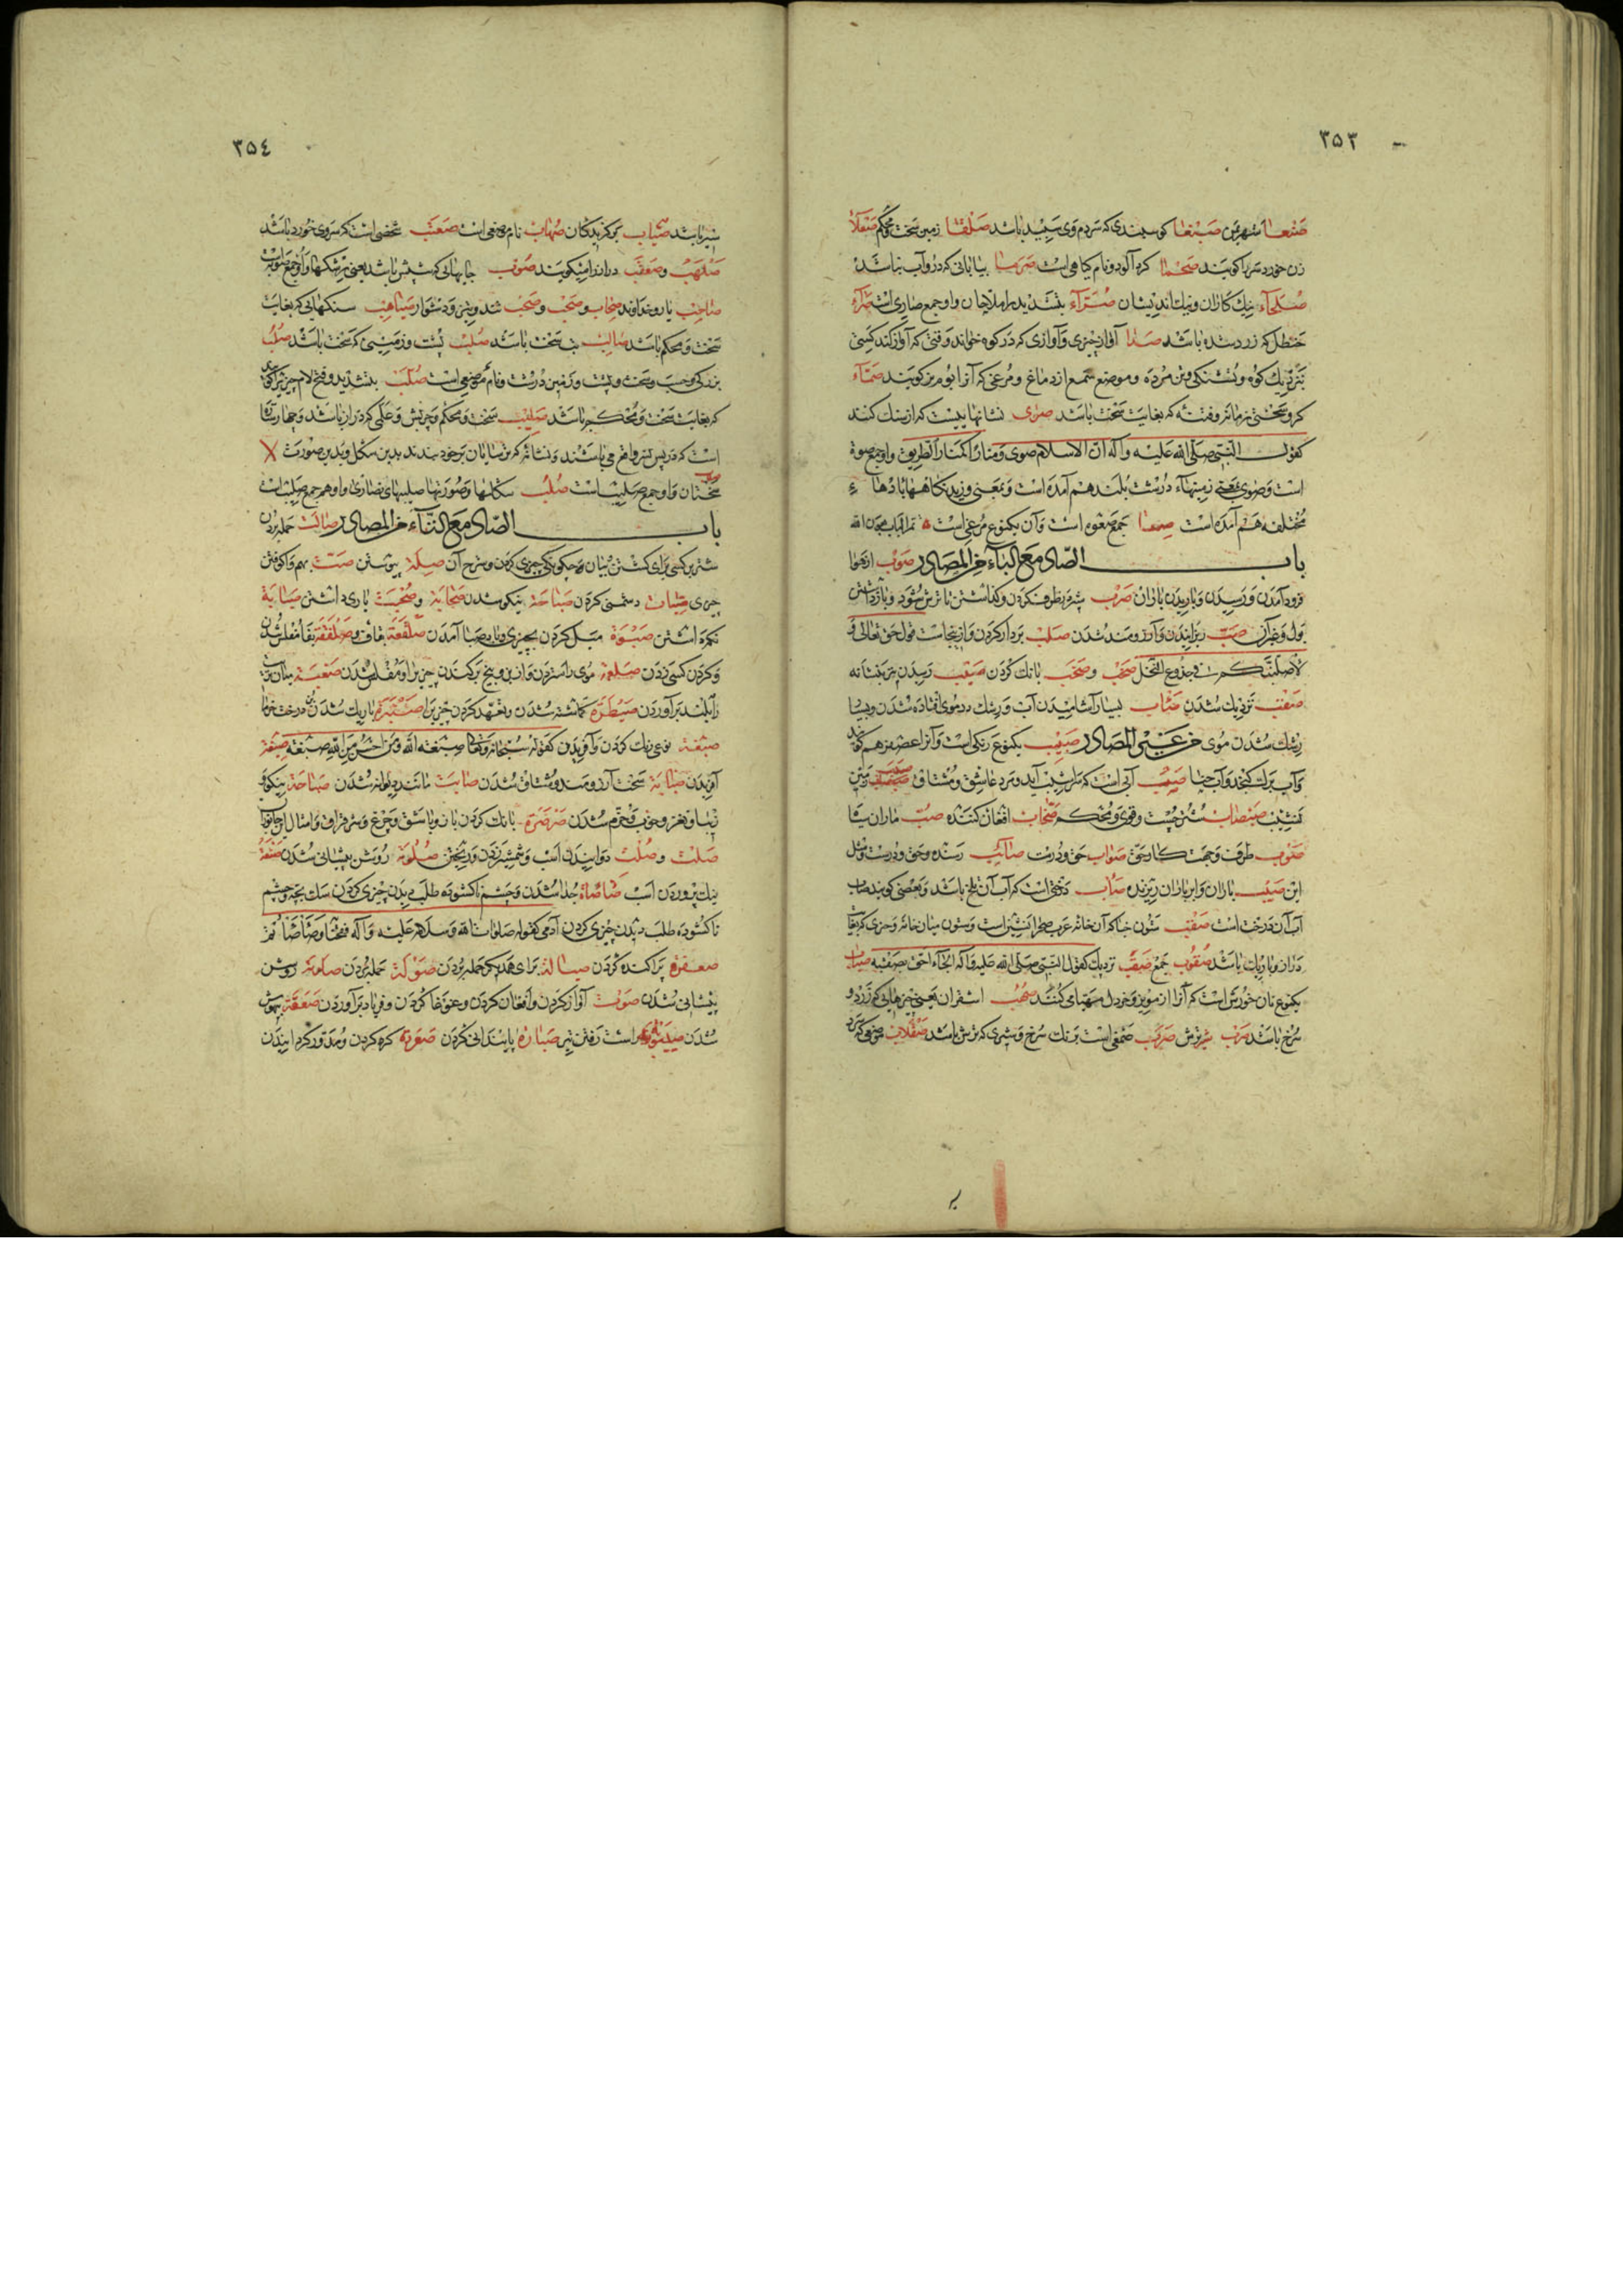 ۳۵۳
صنعا شهر یمن صبغا کوسپندی که سر دم وی سپید باشد صلقا زمین سخت و محکم صقلا
زن خورد سر را کویند صحما کرد آلود و نام کیاهی است صرما بیابانی که درو آب نباشد
صلحاء نیک کاران و نیک اندیشان صراء بتشدید را ملاحان و او جمع صاری است صراء
حنظل که زرد شده باشد صدا آواز چیزی و آوازی که در کوه خواند وقتی که آواز کند کسی
بنزدیک کوه و تشنکی و تن مرده و موضع سمع از دماغ و مرغی که آنرا بوم نر کویند صماء
کر و سختی زمانه و فتنه که بغایت سخت باشد صوی نشانهاییست که از سنک کنند
کقول النبی صلی الله علیه وآله ان الاسلام صوی ومنارا کمنار الطریق و او جمع صوة
است و صوی بمعنی زمینهاء درشت بلند هم آمده است و بمعنی وزیدنکاههای بادهاء
مختلفه هم آمده است صعا جمع صعوه است و آن یکنوع مرغی است تم الباب بعون الله
باب الصاد مع الباء من المصادر صوب از هوا
فرود آمدن و رسیدن و باریدن باران صرب شیر در ظرف کردن و کذاشتن تا ترش شود و بازداشتن
بول و غیر آن صب ریزانیدن و آرزومند شدن صلب بر دار کردن و ازینجاست قول حق تعالی و
لاصلبنکم فی جذوع النخل صخب و صخب بانک کردن صیب رسیدن تیر بنشانه
صقب نزدیک شدن صئاب بسیار آشامیدن آب و رشک در موی افتاده شدن و بسیار
رشک شدن موی من غیر المصادر صبیب یکنوع رنکی است و آنرا عصفر هم کویند
و آب برک کنجد و آب حنا صبب آبی است که سراشیب آید و مرد عاشق و مشتاق صبب زمین
نشیب صبصاب شتر چست و قوی و محکم صخاب افغان کننده صب ماران یا
صوب طرف و جهت کار حق صواب حق و درست صائب رسنده و حق و درست و مثل
این صیب باران و ابر باران ریزنده صاب درختی است که آب آن تلخ باشد و بعضی کویند صاب
آب آن درخت است صقب ستون خباء که آن خانه عرب صحرا نشین است و ستون میان خانه و چیزی که بغایت
دراز و باریک باشد صقوب جمع صقب نزدیک کقول النبی صلی الله علیه وآله الجار احق بصقبه صناب
یکنوع نان خورش است که آنرا از مویز و خردل مهیا می کنند صهب اشقران یعنی چیزهایی که زرد و
سرخ باشد صرب شیر ترش صرب صمغی است برنک سرخ و شیری که ترش باشد صقلاب موضعی که سرد
۳۵٤
سیر باشد صیاب برکزیدکان صهاب نام موضعی است صعنب شخصی است که سر وی خورد باشد
صلهب و صعقب دراز را میکویند صوب جایهایی که
صاحب یار و خداوند صخاب و صخب و صخب شدید و دشوار صیاهب سنکهایی که بغایت
سخت و محکم باشد صالب تب سخت باشد صلب پشت و زمینی که سخت باشد صلب
بزرکی و حسب و سخت و پشت و زمین درشت و نام موضعی است صلب بتشدید و فتح لام چیزیرا کویند
که بغایت سخت و محکم باشد صلیب سخت و محکم و چربش و علمی که دراز باشد و چهار ستاره
است که در پس نسر واقع می باشند و نشانه که ترسایان بر خود بندند بدین شکل و بدین صورت X
سختان و او جمع صلیب است صلب شکلها و صورتها صلیبهای نصاری و او هم جمع صلیب است
باب الصاد مع التاء من المصادر صالت حمله بردن
شتر بر کسی برای کشتن بیان و چکونکی چیزی کردن و شرح آن صلة پیوستن صت بهم واکوفتن
چیزی صتات دشمنی کردن صباحة نیکو شدن صحابة و صحبت یاری داشتن صیانة
نکه داشتن صبوة میل کردن بچیزی و باد صبا آمدن صلقعة بقاف و صلفعة بفا مفلس شدن
و کردن کسی زدن صلعة موی راستردن و از بن و بیخ برکندن چیزیرا و مفلس شدن صعنبة میان ترید
را بلند برآوردن صیطرة کماشته شدن و تعهد کردن چیزیرا صنبرة باریک شدن بن درخت خرما
صبغة نوعی زنک کردن و آفریدن کقوله سبحانه وتعالی صبغة الله ومن احسن من الله صبغة صیغة
آفریدن صبابة سخت آرزومند و مشتاق شدن صابت مانند دیوانه شدن صباحة نیکوی
زیبا و نغز و خوب و خرم شدن صرصرة بانک کردن باز و باشق و چرغ و سرافراز و امثال این جانوران
صلت و صلت دوانیدن اسب و شمشیر زدن و ریختن صلوته روشن پیشانی شدن صنعة
نیک پروردن اسب صاصاة جدا شدن و چشم ناکشوده طلب دیدن چیزی کردن سک بچه و چشم
ناکشوده طلب دیدن چیزی کردن آدمی کقوله صلوات الله وسلامه علیه وآله فقحنا وصاصاتم
صعفرة پراکنده کردن صیالة برای همدیکر حمله بردن صولة حمله بردن صلوته روشن
پیشانی شدن صوت آواز کردن و افغان کردن و غوغا کردن و فریاد برآوردن صعقة بیهوش
شدن صیبوبة راست رفتن تیر صبارة پایندانی کردن صعررة کره کردن و مدور کردانیدن